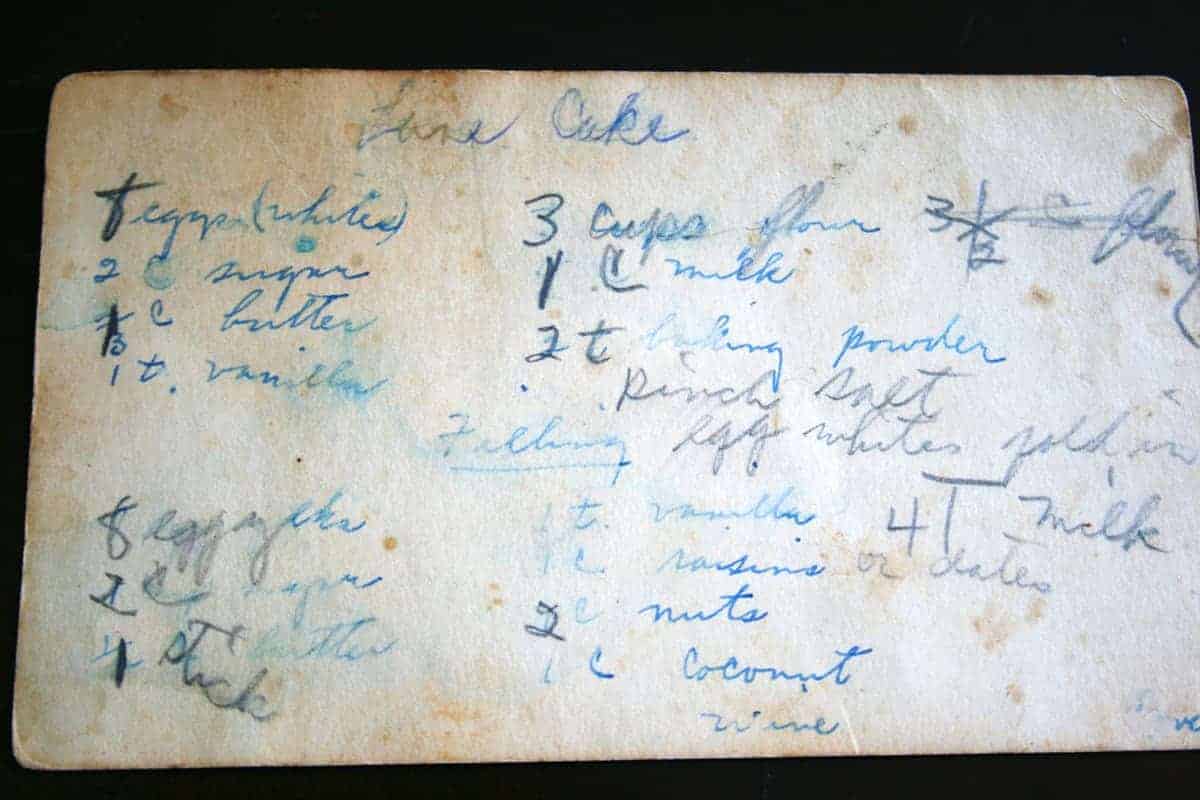 Lane Cake
8 eggs (whites) 3 cups flour 3 1/2 c flour
2 C sugar 1 C milk
1 C butter 2 t baking powder
1 t. vanilla pinch salt
Filling egg whites fold in
8 egg yolks 1 t. vanilla 4 T milk
2 C sugar 1 C raisins or dates
1 stick butter 2 C nuts
1 C coconut
wine